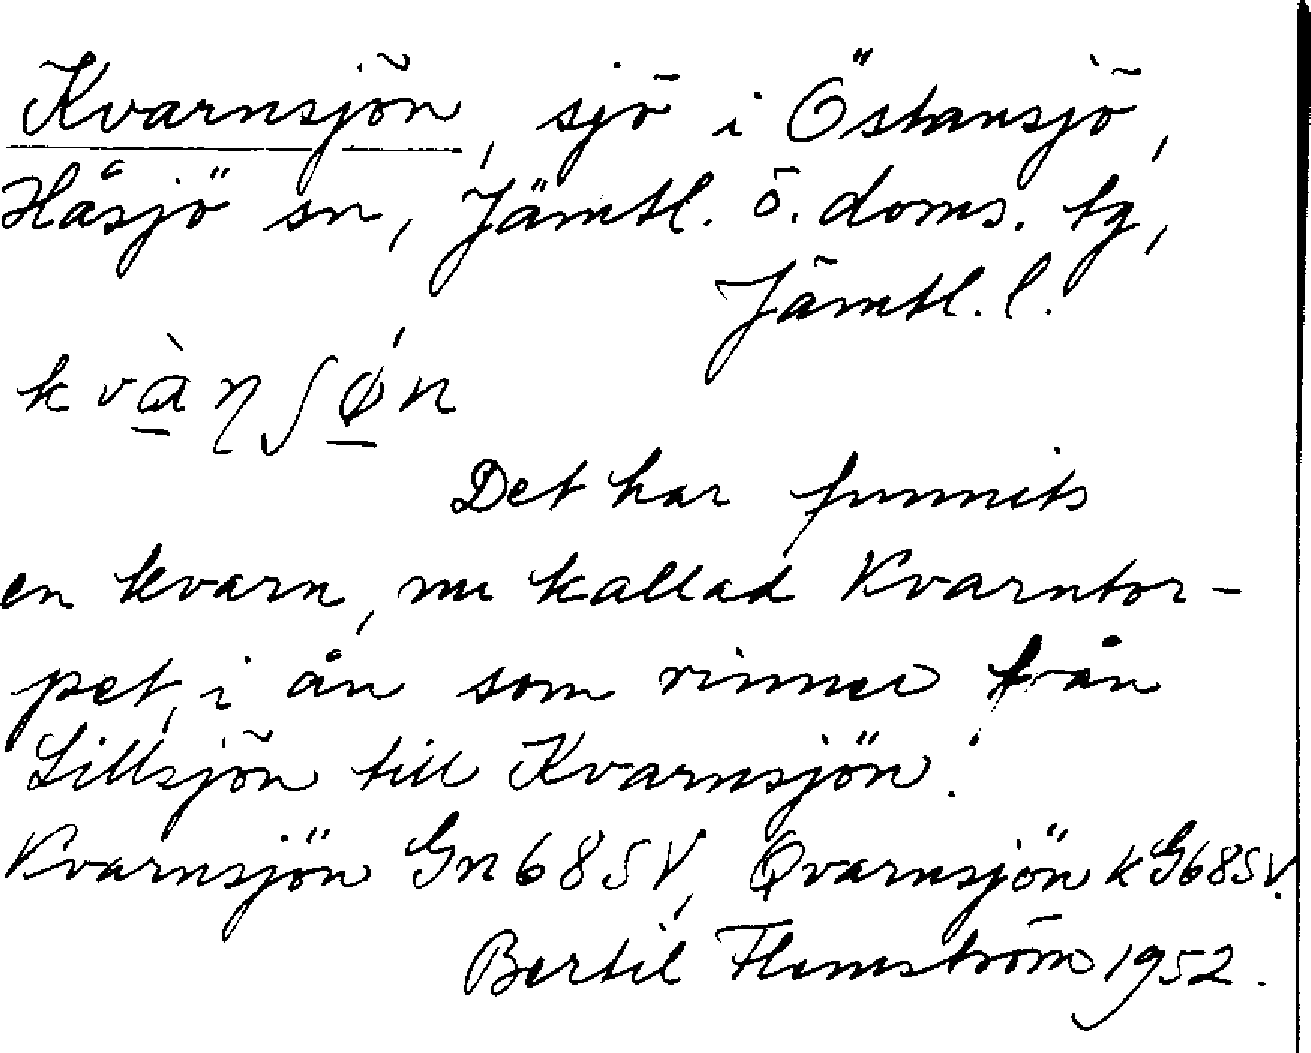 Kvarnsjön, sjö i Östansjö,
Håsjö sn, Jämtl. ö. doms. tg,
Jämtl. l.
kvàŋʃǿn
Det har funnits
en kvarn, nu kallad Kvarntor-
pet, i ån som rinner från
Lillsjön till Kvarnsjön.
Kvarnsjön Gn 68 SV, Qvarnsjön k G68SV.
Bertil Flemström 1952.